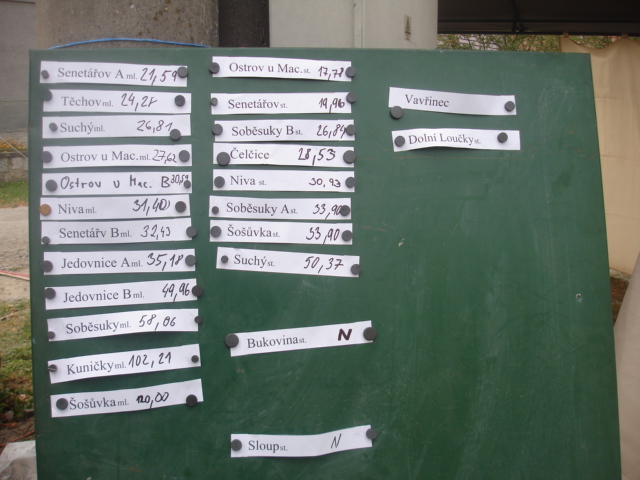 Senetářov A ml. 21,59
Těchov ml. 24,28
Suchý ml. 26,81
Ostrov u Mac. ml. 27,62
Ostrov u Mac. B
Niva ml. 31,40
Senetářv B ml. 32,43
Jedovnice A ml. 35,18
Jedovnice B ml. 49,96
Soběsuky ml. 58,06
Kuničky ml. 102,21
Šošůvka ml. 120,00
Ostrov u Mac. st. 17,77
Senetářov st. 19,96
Soběsuky B st. 26,84
Čelčice 28,53
Niva st. 30,93
Soběsuky A st. 33,90
Šošůvka st. 33,90
Suchý st. 50,37
Bukovina st. N
Sloup st. N
Vavřinec
Dolní Loučky st.